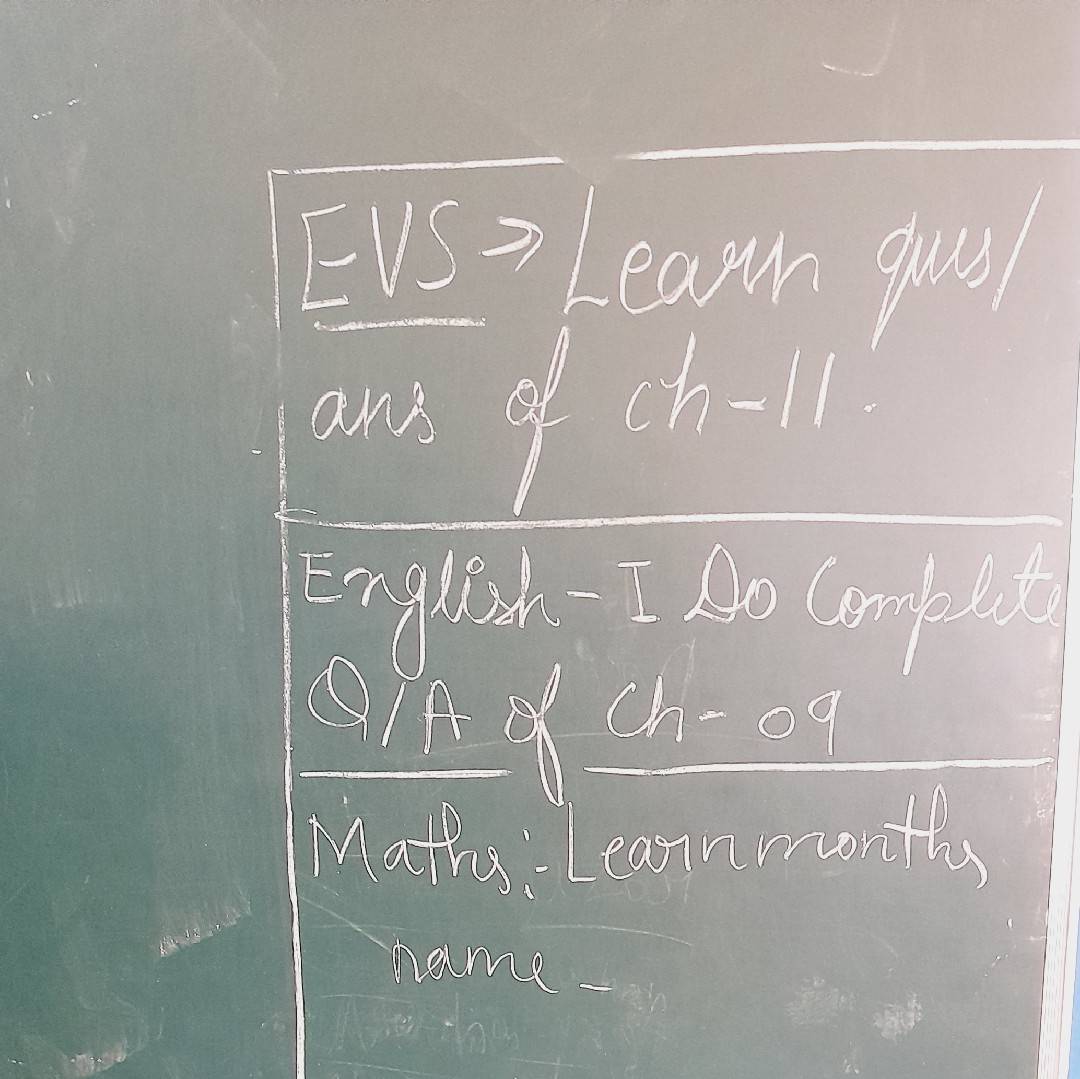 EVS → Learn ques/
ans of ch-11.
English - I Do Complete
Q/A of Ch- 09
Maths:- Learn months
name -